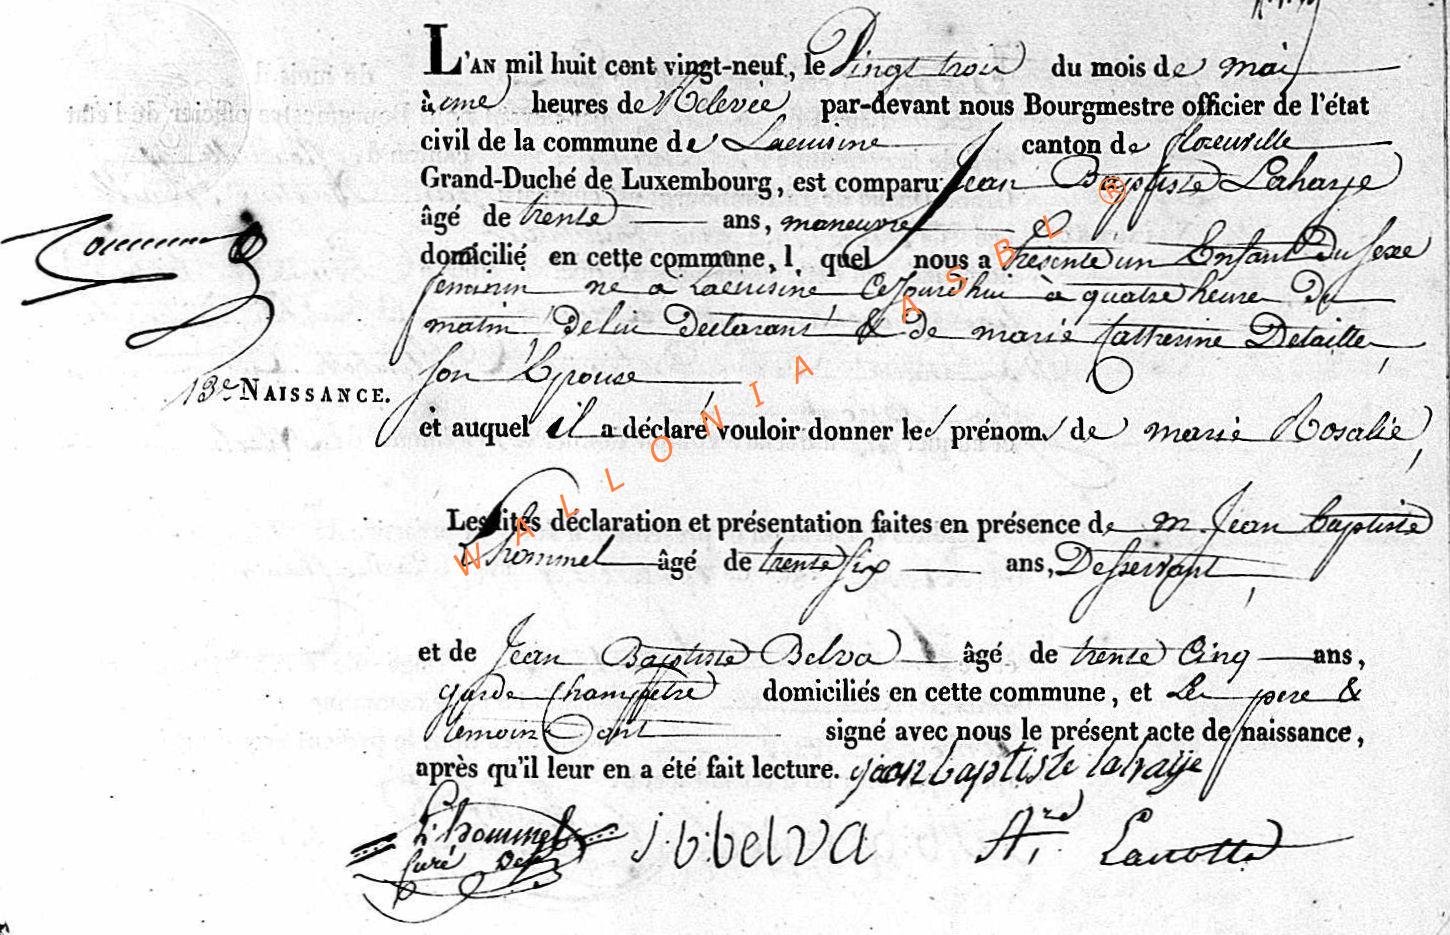 L'AN mil huit cent vingt-neuf, le Vingt trois du mois de mai
à une heures de Relevée par-devant nous Bourgmestre officier de l'état
civil de la commune de Lacuisine canton de florenville
Grand-Duché de Luxembourg, est comparu Jean Baptiste Lahaije
âgé de trente ans, maneuvre
domicilié en cette commune, l quel nous a présenté un Enfant Du sexe
feminin né a Lacuisine Cejourdhui à quatre heure Du
matin De lui Declarant & de marie Catherine Detaille
son Epouse
13e NAISSANCE.
et auquel il a déclaré vouloir donner les prénoms de marie Rosalie
Lesdites déclaration et présentation faites en présence de m. Jean Baptiste
Lhommel âgé de trente six ans, Desservant
et de Jean Baptiste Belva âgé de trente Cinq ans,
garde Champêtre domiciliés en cette commune, et Le pere &
temoins ont signé avec nous le présent acte de naissance,
après qu'il leur en a été fait lecture. jean baptiste lahaije
L'hommel j·b·belva
Curé Des
WALLONIA ASBL ®